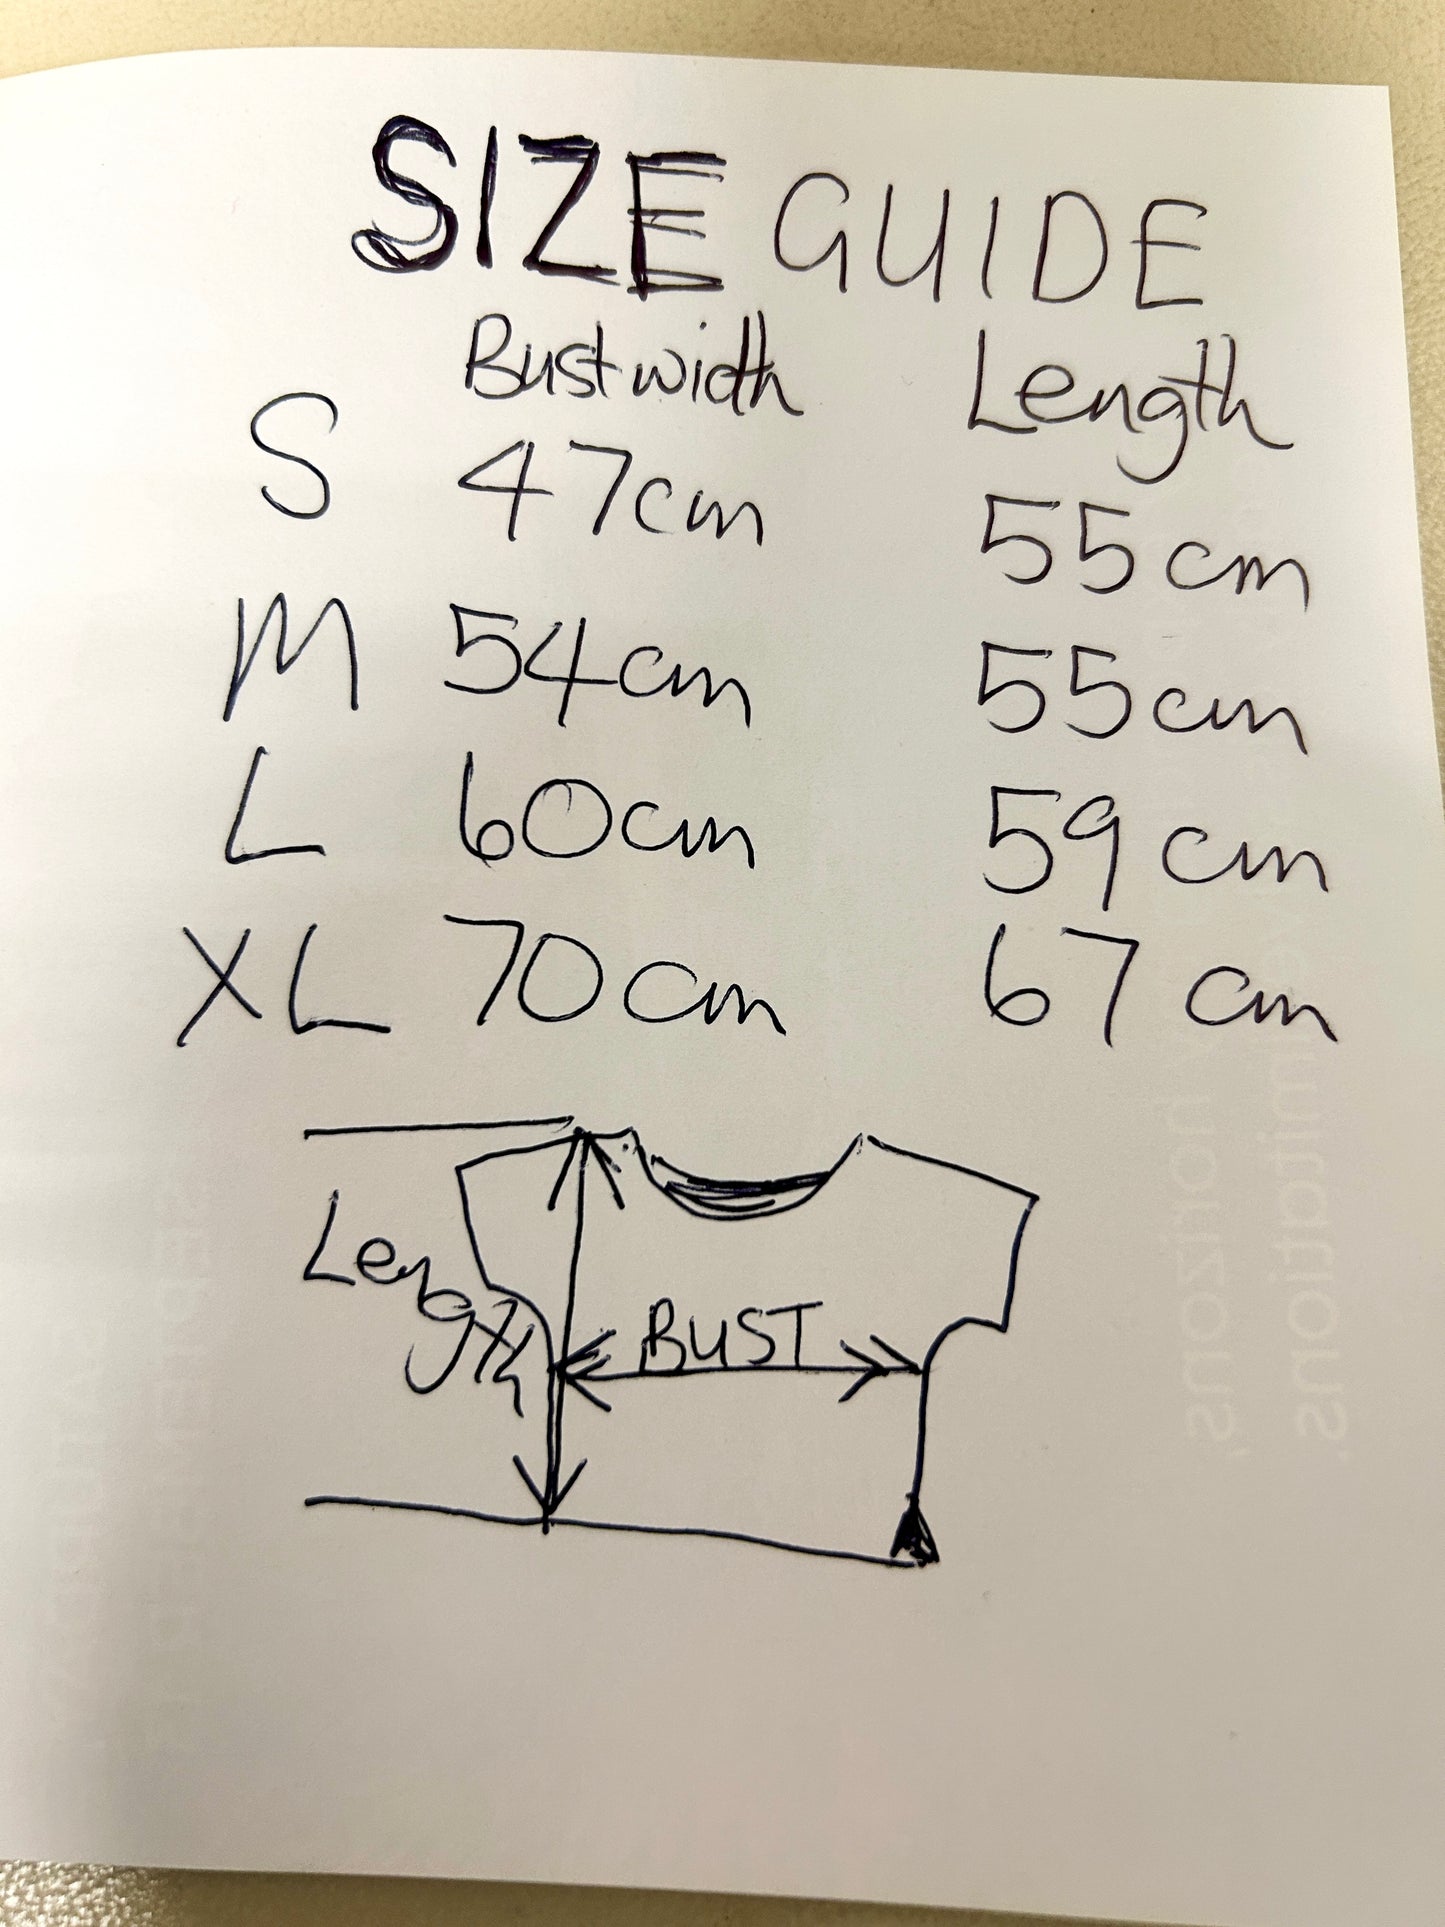 SIZE GUIDE
Bust width Length
S 47cm 55cm
M 54cm 55cm
L 60cm 59cm
XL 70cm 67cm
Length
BUST